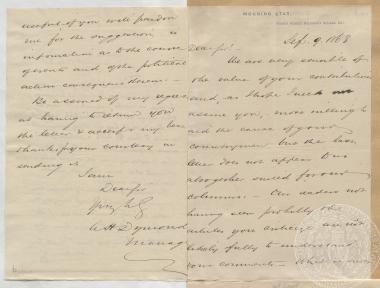 MORNING STAR,
Sep. 9 1868
Dear Sir:
We are very sensible of
the value of your contributions
and, as I hope I need not
assure you, most willing to
aid the cause of your
countrymen but the last
letter does not appear to us
altogether suited for our
columns – Our readers not
having seen probably the
articles you criticise are not
likely fully to understand
your comments – What is most
useful if you will pardon
me for the suggestion is
information as to the course
of events and of the political
action consequent thereon.
Be assured of my regret
at having to return you
the letter & accept my best
thanks for your courtesy in
sending it
I am
Dear Sir
Yrs
A H Dymond
Manager